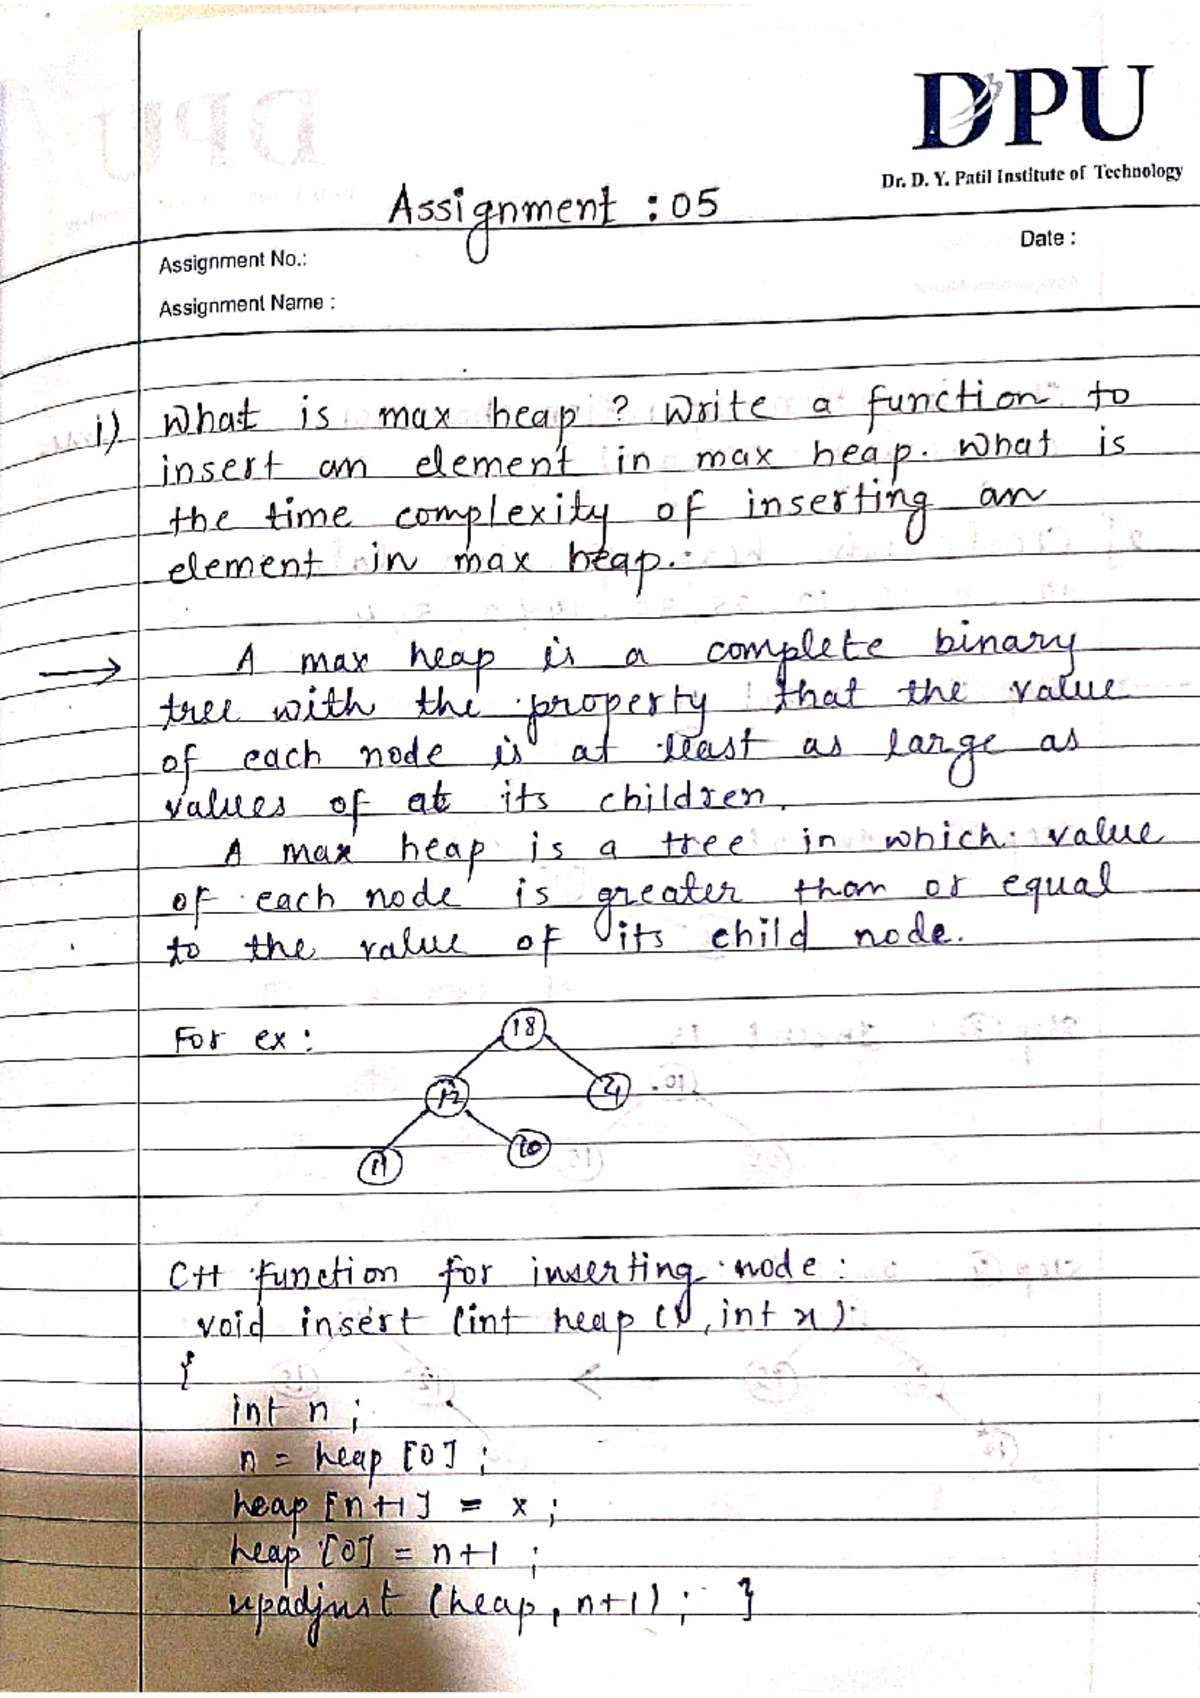 DPU
Dr. D. Y. Patil Institute of Technology
Assignment : 05
Date :
Assignment No.:
Assignment Name :
i) What is max heap ? Write a function to
insert an element in max heap. What is
the time complexity of inserting an
element in max heap.
→ A max heap is a complete binary
tree with the property that the value
of each node is at least as large as
values of at its children.
A max heap is a tree in which value
of each node is greater than or equal
to the value of its child node.
For ex :
18
12
4
11
10
C++ function for inserting node :
void insert (int heap [], int x)
{
int n ;
n = heap [0] ;
heap [n+1] = x ;
heap [0] = n+1 ;
upadjust (heap, n+1) ; }